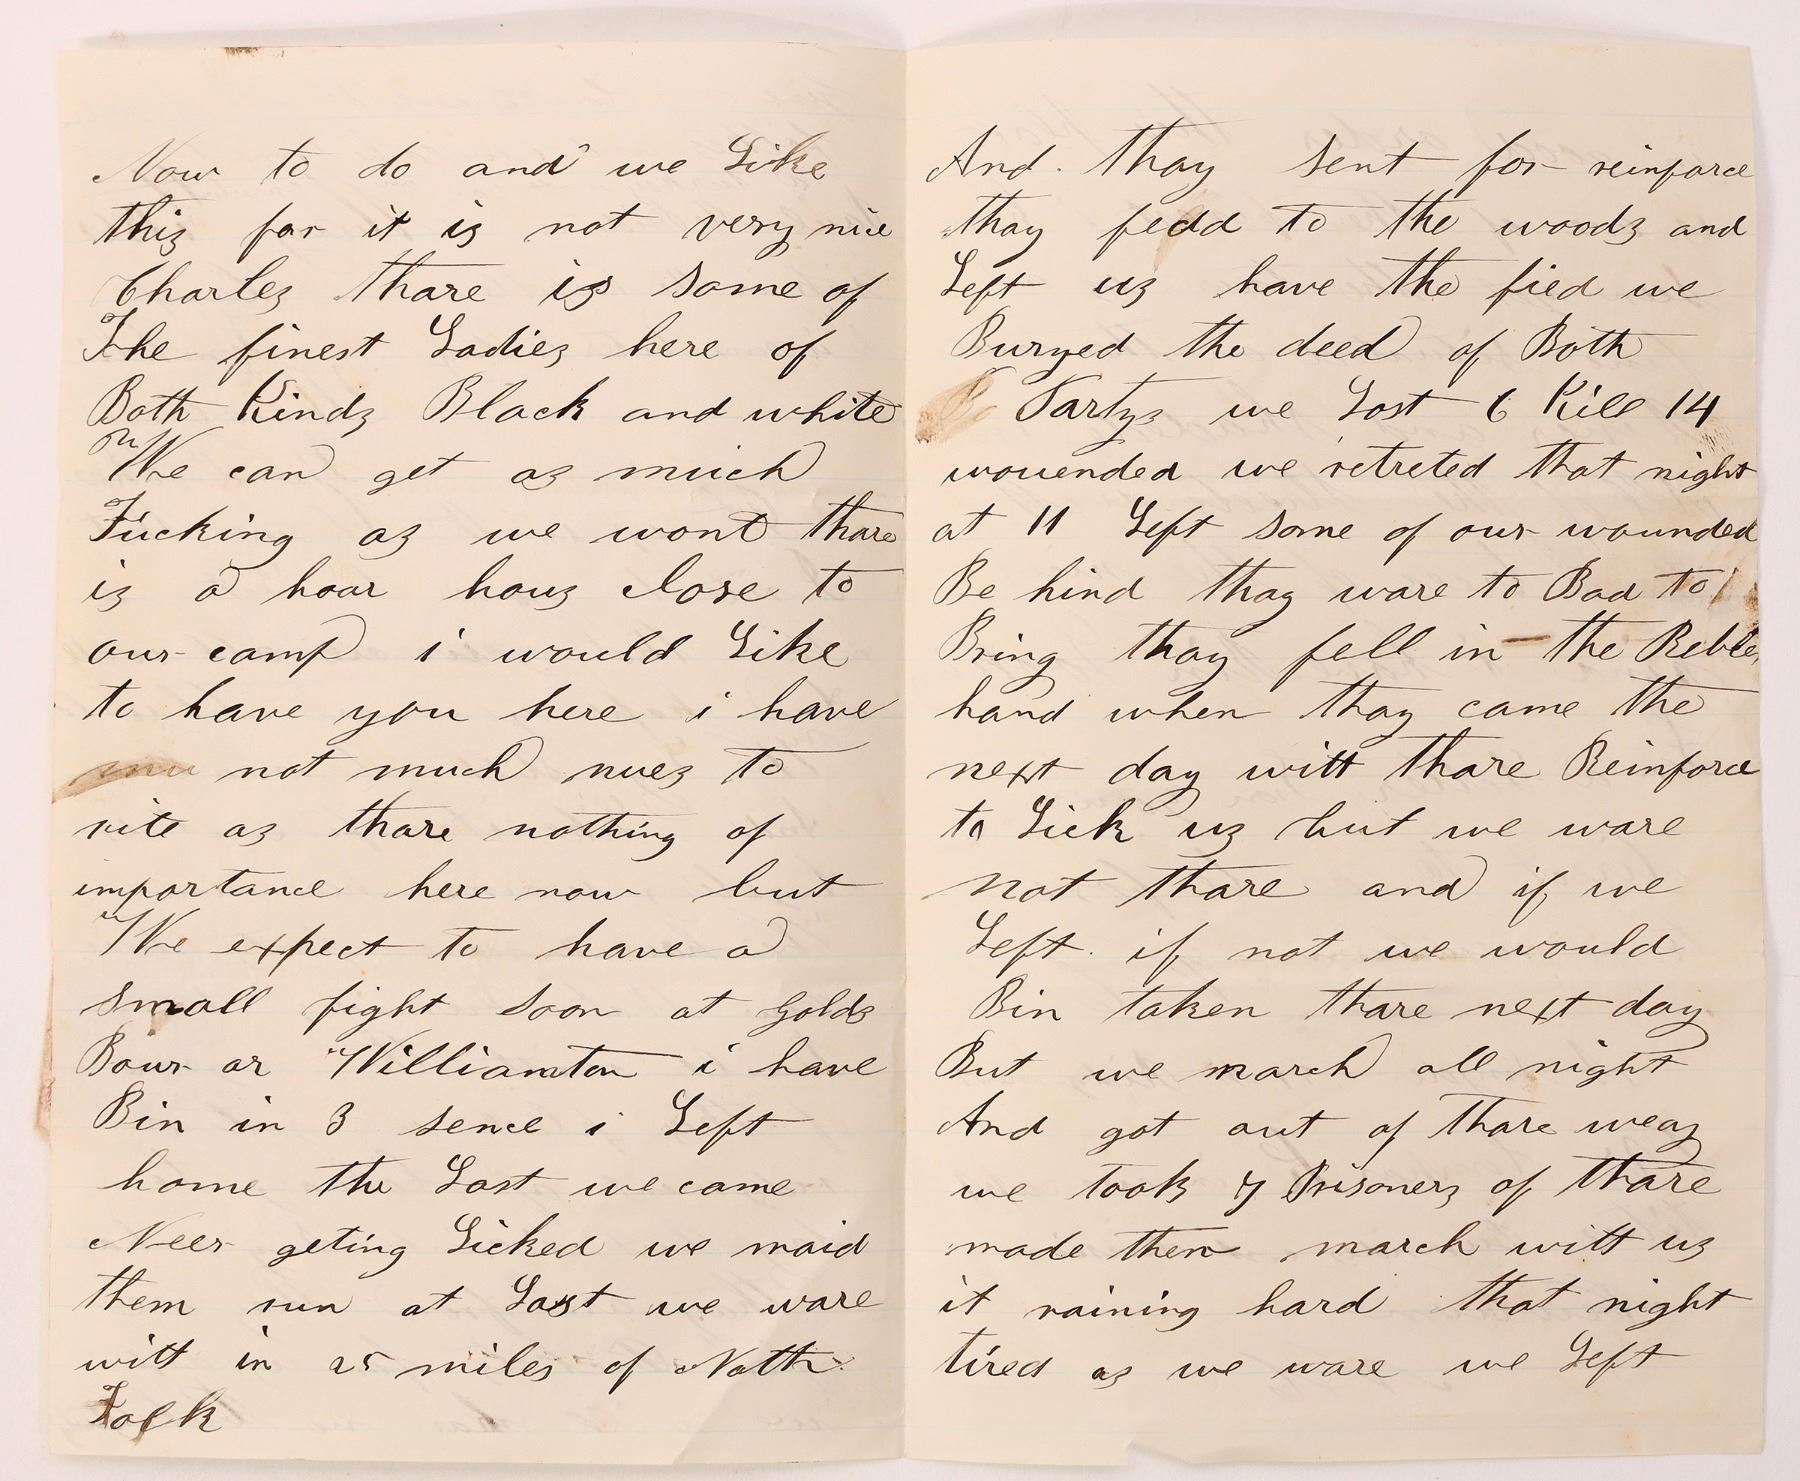 Now to do and we Like
this for it is not very nice
Charles thare is some of
The finest Ladies here of
Both Kinds Black and white
We can get as much
Fucking as we wont thare
is a hoar hous close to
our camp i would Like
to have you here i have
not much nues to
rite as thare nothing of
importance here now but
We expect to have a
small fight soon at Golds
Bour or Williamton i have
Bin in 3 sence i Left
home the Last we came
Neer geting Licked we maid
them run at Last we ware
witt in 25 miles of Noth
Folk
And thay sent for reinforce
thay fedd to the woods and
Left us have the fied we
Buryed the deed of Both
Partys we Lost 6 Kill 14
wouended we retreted that night
at 11 Left some of our wounded
Be hind thay ware to Bad to
Bring thay fell in the Rebles
hand when thay came the
next day witt thare Reinforce
to Lick us but we ware
not thare and if we
Left if not we would
Bin taken thare next day
But we march all night
And got out of thare weay
we took 7 Prisoners of thare
made then march witt us
it raining hard that night
tired as we ware we Left